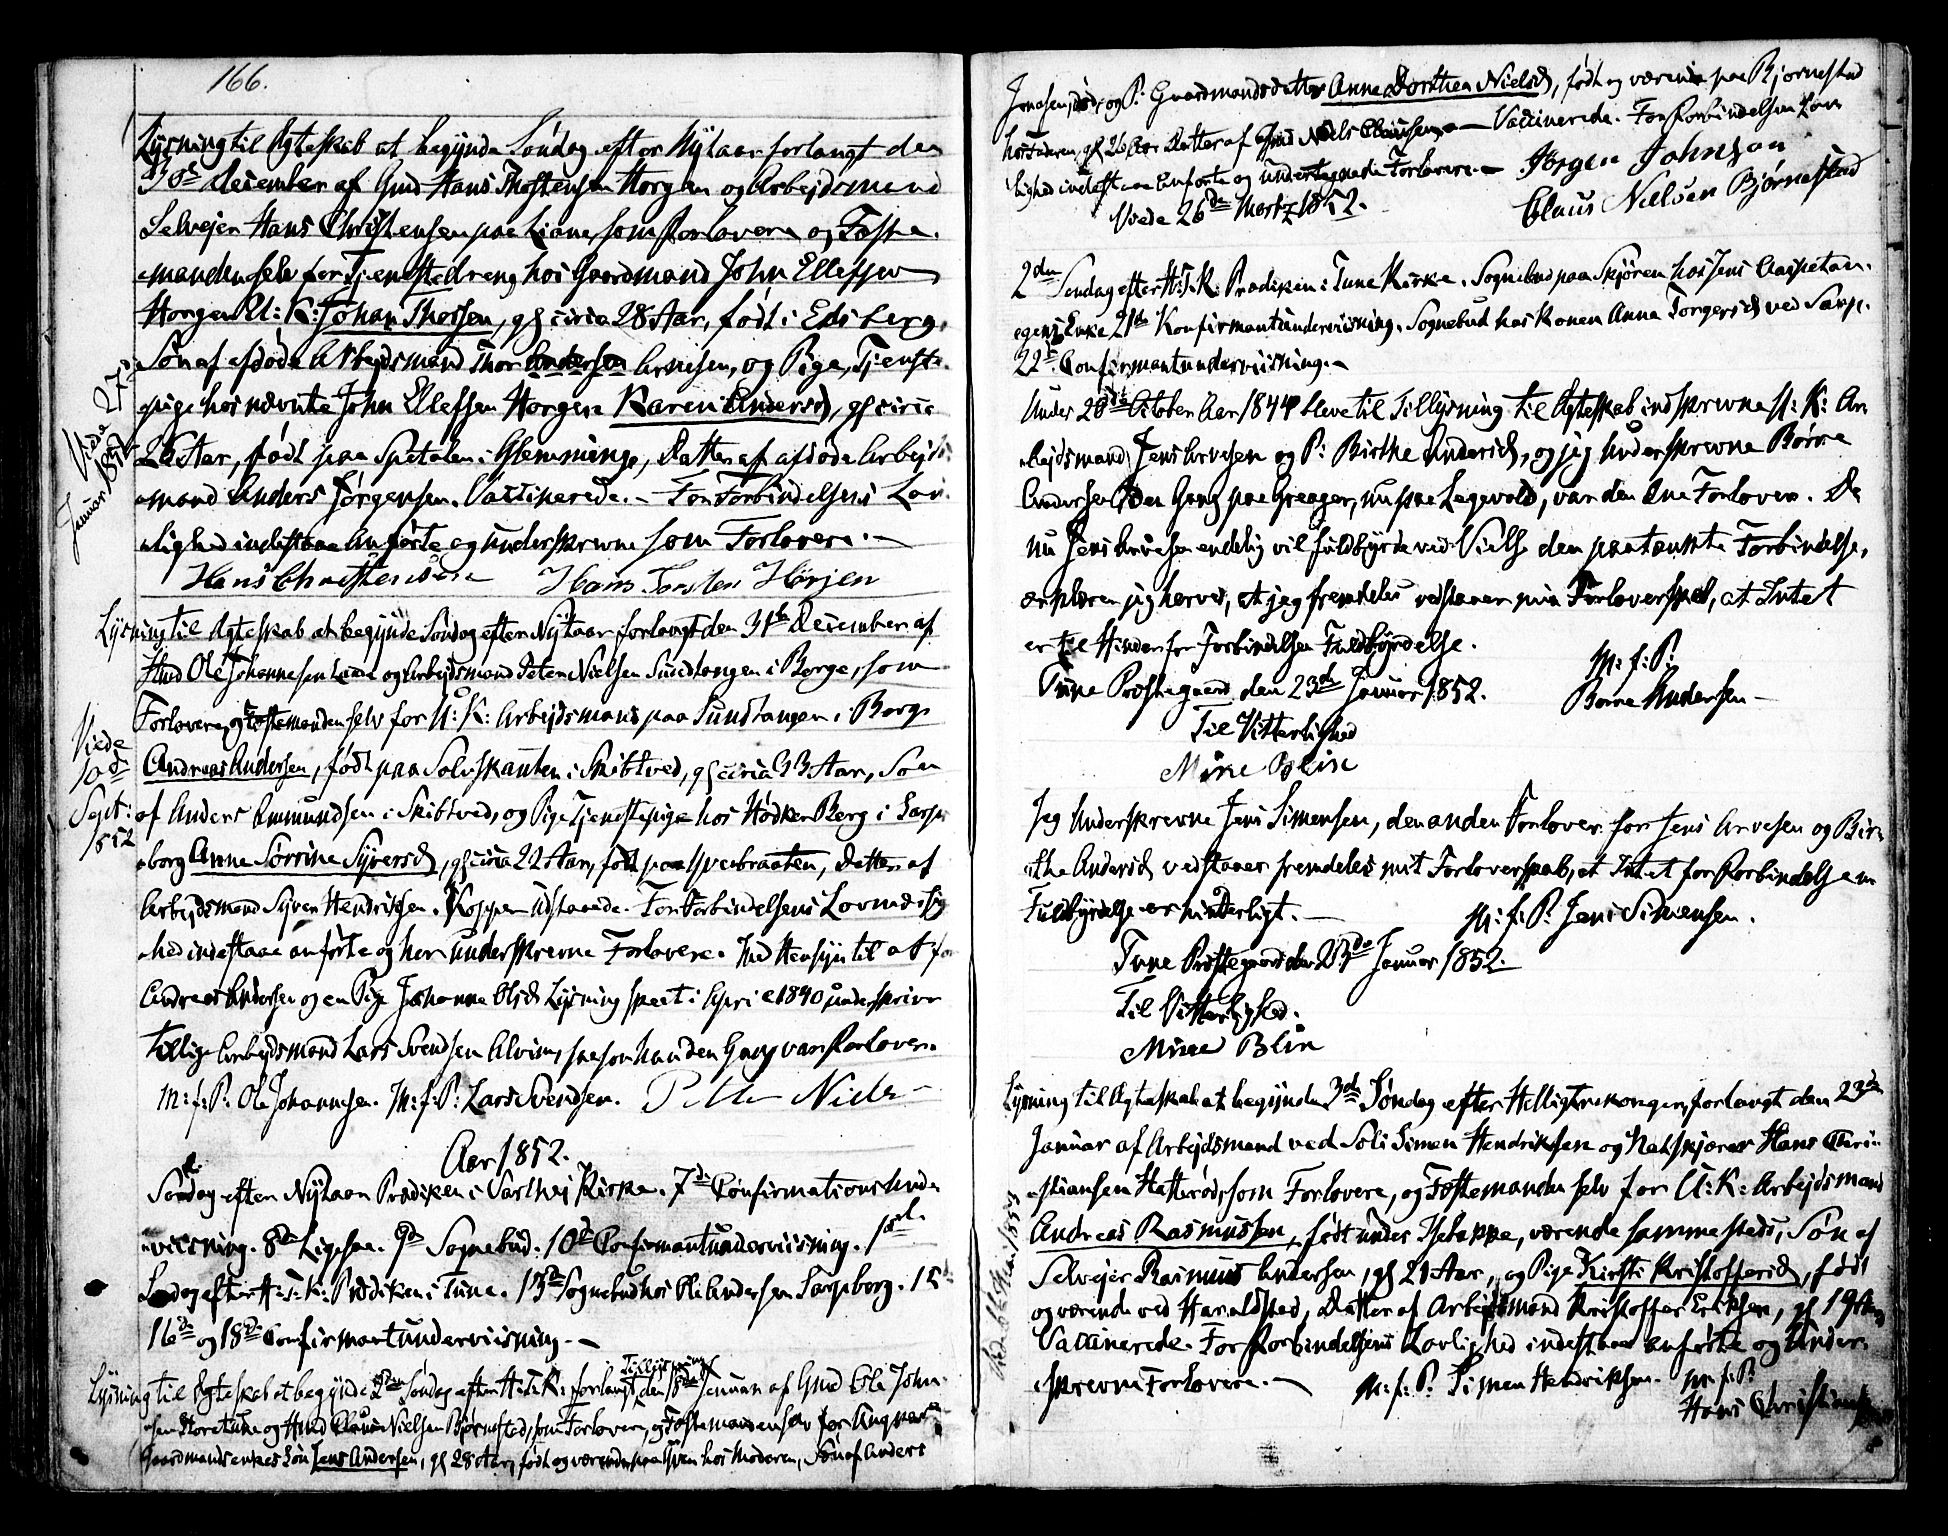 166.
Lysning til Ægteskab at begynde Søndag efter Nytaar forlangt den
30te December af Gmd Hans Thostensen Horgen og Arbejdsmand
Selvejer Hans Christensen paa Liane, som Forlovere og Fæste-
manden selv for Tjenestedreng hos Gaardmand John Ellefsen
Horgen U: K: Johan Thorsen, gl circa 28 Aar, født i Edsberg,
Søn af afdøde Arbejdsmand Thor Andersen Arnesen, og Pige, Tjeneste-
pige hos nævnte John Ellefsen Horgen Karen Andersd, gl circa
26 Aar, født paa Spetalen i Glemminge, Datter af afdøde Arbejds-
mand Anders Jørgensen. Vaccinerede. – For Forbindelsens Lov-
lighed indestaae Anførte og underskrevne som Forlovere. –
Viede 27de
Januar 1852
Hans Christensen Hans Torsten Hørjen
Lysning til Ægteskab at begynde Søndag efter Nytaar forlangt den 31te December af
Hmd Ole Johannesen og Arbejdsmand Peter Nielsen Sundtangen i Borge, som
Forlovere, og Fæstemanden selv for U: K: Arbejdsmand paa Sundtangen i Borge
Andreas Andersen, født paa Solvskauten i Skibtved, gl circa 33 Aar, Søn
af Anders Ammundsen i Skibtved, og Pige Tjenestepige hos Høker Berg i Sarps-
borg Anne Sørrine Syversd, gl circa 22 Aar, født paa Spverbraaten, Datter af
Arbejdsmand Syver Hendriksen. Kopper Udstaaede. For Forbindelsens Lovmæssig-
hed indestaae anførte og her underskrevne Forlovere. Med Hensyn til at for
Andreas Andersen og en Pige Johanne Olsd Lysning skeet i April 1840 underskriver
tillige Arbejdsmand Lars Svendsen Alvim, saasom han den Gang var Forlover.
Viede
10de
Sept:
1852
M: f: P: Ole Johannesen. M: f: P: Lars Svendsen. Petter Niels–
Aar 1852.
Søndag efter Nytaar Prædiken i Varthej Kirke. 7de Confirmationsunder-
viisning. 8de Ligpræ. 9de Sognebud. 10de Confirmantunderviisning. 1ste
Søndag efter H: T: K: Prædiken i Tune. 13de Sognebud hos Ole Andersen Sarpsborg. 15de
16de og 18de Confirmantunderviisning. –
Lysning til Ægteskab at begynde 2den Søndag efter H: T: K: forlangt Tillysning den 18de Januar af Gmd Ole John-
sen Store Tune og Hmd Claus Nielsen Bjørnstad, som Forlovere, og Fæstemanden selv for Ungkarl
Gaardmandsenkes Søn Jens Andersen, gl 28 Aar, født og værende paa hos Moderen, Søn af Anders
Jensen, død, og P: Gaardmandsdatter Anne Dorthea Nielsd, født og værende paa Bjørnestad
hos Faderen, gl 26 Aar Datter af Gmd Niels Clausen. – Vaccinerede. For Forbindelsens Lov-
lighed indestaae Anførte og undertegnede Forlovere. – Jørgen Johnson
Viede 26de Martz 1852. Claus Nielsen Bjørnestad
2den Søndag efter H: T: K: Prædiken i Tune Kirke. Sognebud paa Skjøren hos Jens Aaspetan-
egens Enke 21de Konfirmantunderviisning. Sognebud hos Konen Anna Torgersd ved Sarp.
22de Confirmantunderviisning. –
Under 26de October Aar 1844 bleve til Tillysning til Ægteskab indskrevne U: K: Ar-
bejdsmand Jens Arvesen og P: Birthe Andersd, og jeg underskrevne Børre
Andersen den Gang paa Greager, nu paa Legevold, var den ene Forlover. Da
nu Jens Arvesen endelig vil fuldbyrde ved Vielse den paatænkte Forbindelse,
erklærer jeg herved, at jeg fremdeles vedstaaer min Forloverskab, at Intet
er til Hinder for Forbindelsens Fuldbyrdelse.
Tune Præstegaard den 23de Januar 1852. M: f: P:
Børre Andersen –
Til Vitterlighed
Mine Blin
Jeg Underskrevne Jens Simensen, den anden Forlover for Jens Arvesen og Bir-
the Andersd vedstaaer fremdeles mit Forloverskab, at Intet for Forbindelsens
Fuldbyrdelse er hinderligt. – M: f: P: Jens Simensen.
Tune Præstegaard den 23de Januar 1852.
Til Vitterlighed.
Mine Blin
Lysning til Ægteskab at begynde 3de Søndag efter Helligtrekonger, forlangt den 23de
Januar af Arbejdsmand ved Soli Simen Hendriksen og Hans Chri-
stiansen Hatterød, som Forlovere, og Fæstemanden selv for U: K: Arbejdsmand
Andreas Rasmussen, født under Isebakke, værende sammesteds, Søn af
Selvejer Rasmus Andersen, gl 21 Aar, og Pige Kirsti Kristoffersd, født
og værende ved Haraldsted, Datter af Arbejdsmand Kristoffer Eriksen, gl 19 Aar,
Vaccinerede. For Forbindelsens Lovlighed indestaae anførte og under-
skrevne Forlovere. – M: f: P: Simen Hendriksen. M: f: P:
Hans Christiansen